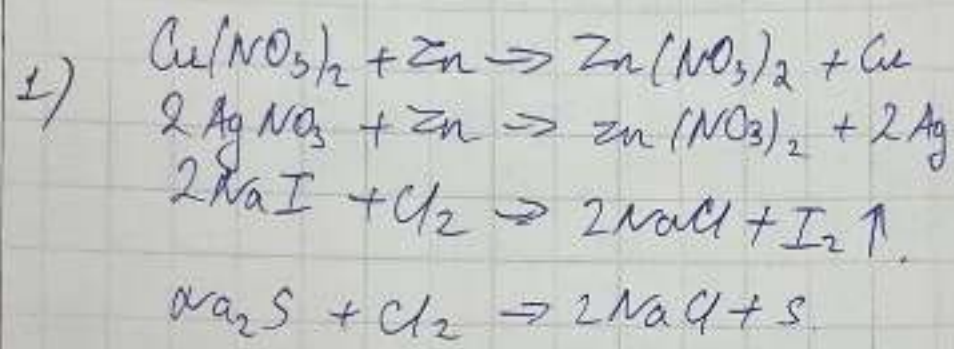 1) Cu(NO₃)₂ + Zn → Zn(NO₃)₂ + Cu
2AgNO₃ + Zn → Zn(NO₃)₂ + 2Ag
2NaI + Cl₂ → 2NaCl + I₂↑.
Na₂S + Cl₂ → 2NaCl + S.